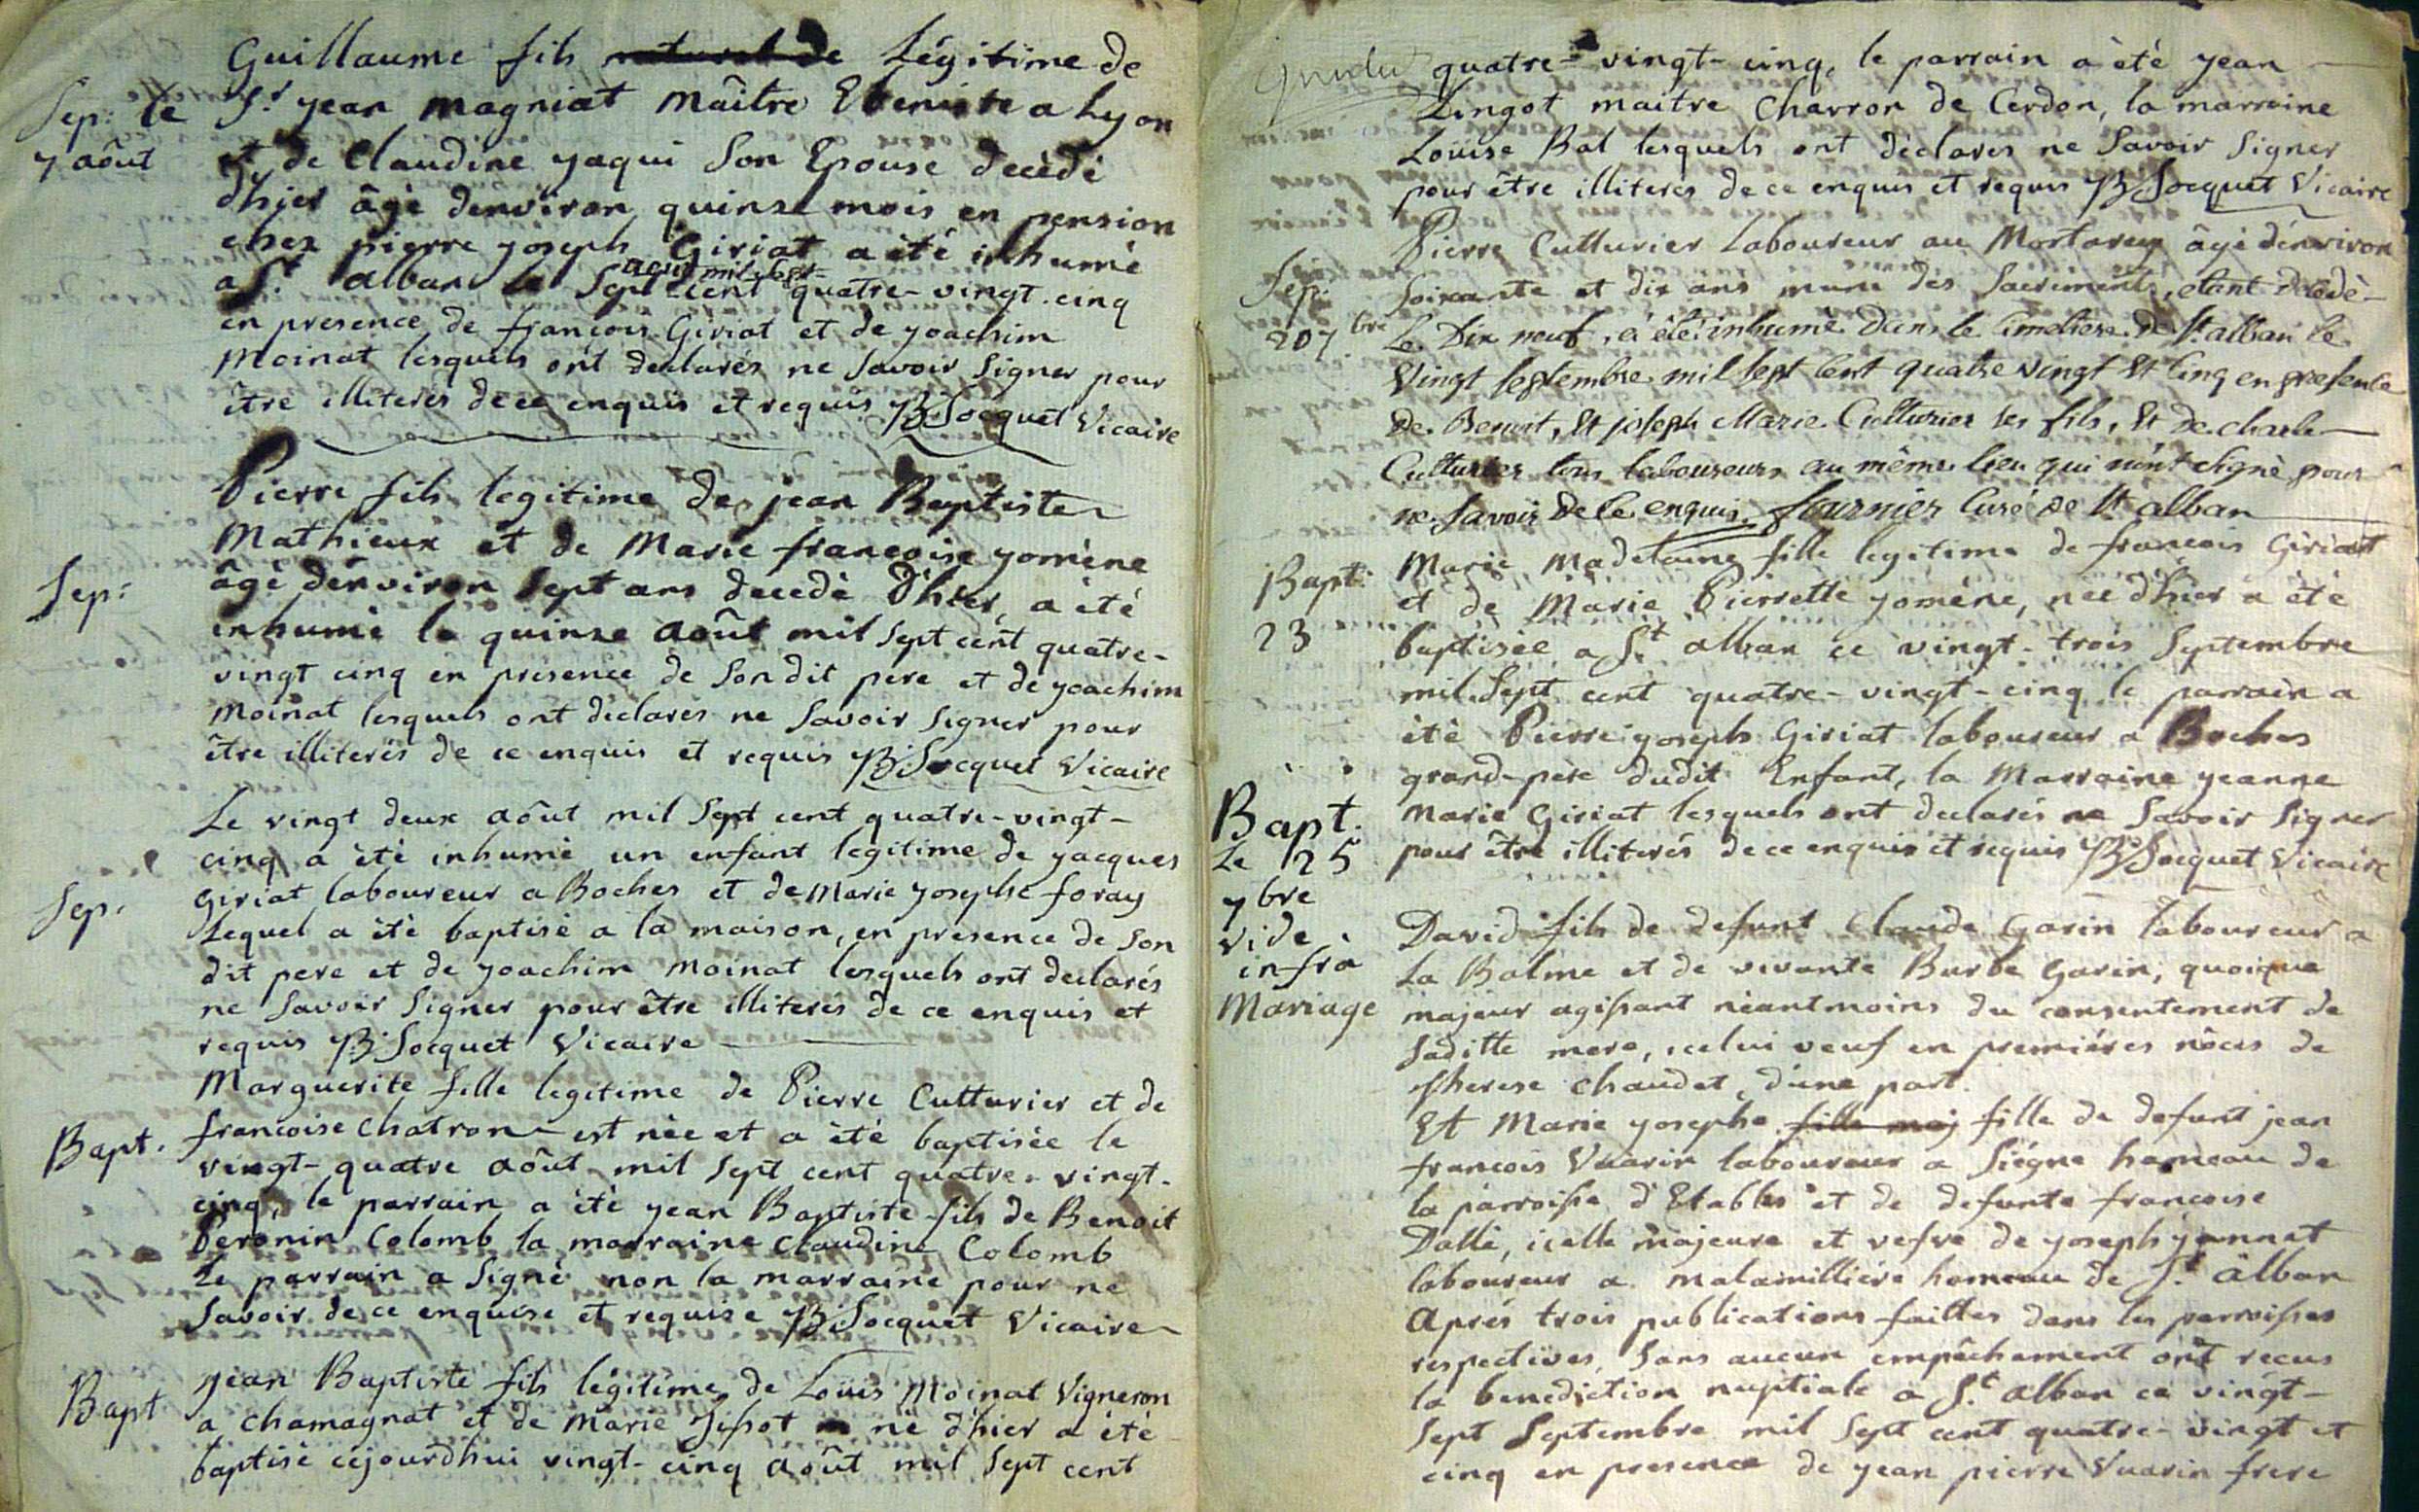 Guillaume fils naturel de Légitime de
Sep: le Sr yean magniat maître Ebeniste a Lyon
7 aôut et de Claudine yaqui Son Epouse decèdé
d'hier âgè d'environ quinze mois en pension
chez pierre yoseph Giriat a ètè inhumè
a St alban le Sept aout mil Sept cent quatre-vingt-cinq
en presence de françois Giriat et de yoachim
Moinat lesquels ont declarés ne Savoir Signer pour
être illiterés de ce enquis et requis B Socquet Vicaire
Pierre fils legitime de jean Baptiste
Mathieux et de Marie françoise yomène
Sep: âgè d'environ Sept ans decedè d'hier, a ètè
inhumè le quinze Août mil Sept cent quatre-
vingt cinq en presence de Son dit pere et de yoachim
Moinat lesquels ont declarés ne Savoir Signer pour
être illiterés de ce enquis et requis B Socquet Vicaire
Le vingt deux aôut mil Sept cent quatre-vingt-
cinq a ètè inhumè un enfant legitime de yacques
Sep. Giriat laboureur a Boches et de Marie yosephe foray
Lequel a ètè baptisè a la maison, en presence de Son
dit pere et de yoachim Moinat lesquels ont declarés
ne Savoir Signer pour être illiterés de ce enquis et
requis B Socquet Vicaire
Marguerite fille legitime de Pierre Cutturier et de
Bapt. françoise Chatron est nèe et a ètè baptisèe le
vingt-quatre aôut mil Sept cent quatre-vingt-
cinq, le parrain a ètè yean Baptiste fils de Benoit
Peronin Colomb la marraine Claudine Colomb
Le parrain a Signè non la marraine pour ne
Savoir de ce enquise et requise B Socquet Vicaire
Bapt yean Baptiste fils légitime de Loüis Moinat Vigneron
a chamagnat et de Marie nè d'hier a ètè
baptisè cejourdhui vingt-cinq août mil Sept cent
quatre-vingt-cinq, le parrain a ètè yean
Lingot maitre Charron de Cerdon, la marraine
Loüise Bal lesquels ont dèclarés ne Savoir Signer
pour être illiterés de ce enquis et requis B Socquet Vicaire
Pierre Cutturier Laboureur au Mortarey âgè d'environ
Sep. Soixante et dix ans muni des Sacriments, etant decèdè
20 7bre Le Dix neuf, a été inhumè Dans le Cimetiere de St alban le
Vingt Septembre mil Sept Cent quatre vingt Et Cinq en presence
De Benoit, Et joseph Marie Cutturier Ses fils, Et De charle
Cutturier tous laboureurs au même lieu qui n'ont Signè pour
ne Savoir De Ce enquis fournier Curé de St alban
Bapt: Marie Madelaine fille legitime de francois Giriat
23 et de Marie Pierrette yomène, nèe d'hier a ètè
baptisèe a St alban ce vingt-trois Septembre
mil Sept cent quatre-vingt-cinq le parrain a
ètè Pierre yoseph Giriat laboureur a Boches
grand-père dudit Enfant, la Marraine yeanne
Bapt. Marie Giriat lesquels ont declarés ne Savoir Signer
Le 25 pour être illiterés de ce enquis et requis B Socquet Vicaire
7bre
vide infra
David fils de defunt Claude Garin laboureur a
La Balme et de vivante Burbe Garin, quoique
Mariage majeur agissant nèantmoins du consentement de
Saditte mere, icelui veuf en premières nôces de
therese chaudet, d'une part
Et Marie yosephe fille maj fille de defunt jean
francois Vuarin laboureur a Siègne hameau de
la parroisse d'Etables et de defunte francoise
Dallé, icelle majeure et vefve de yoseph yannet
laboureur a malamilliére hameau de St âlban
Aprés trois publications faittes dans les parroisses
respectives, Sans aucun empêchement ont recus
la benediction nuptiale a St alban ce vingt-
Sept Septembre mil Sept cent quatre-vingt et
cinq en presence de yean pierre Vuarin frere